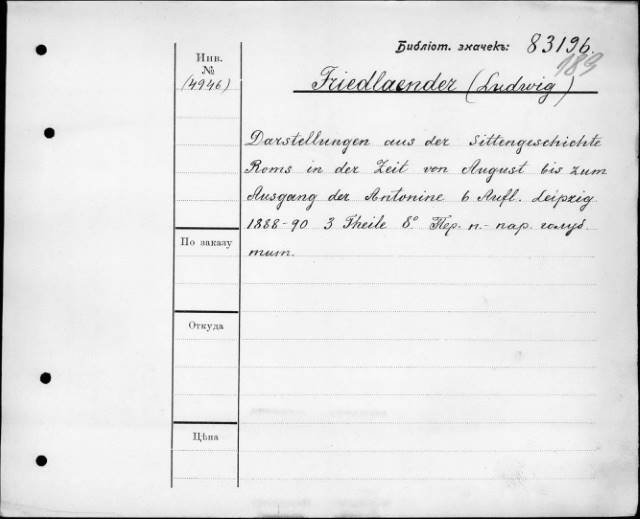 Библіот. значекъ: 83196.
189
Инв.
№
(4946)
Friedlaender (Ludwig)
Darstellungen aus der Sittengeschichte
Roms in der Zeit von August bis zum
Ausgang der Antonine 6 Aufl. Leipzig
1888-90 3 Theile 8º Пер. п.- пар. голуб.
тит.
По заказу
Откуда
Цѣна